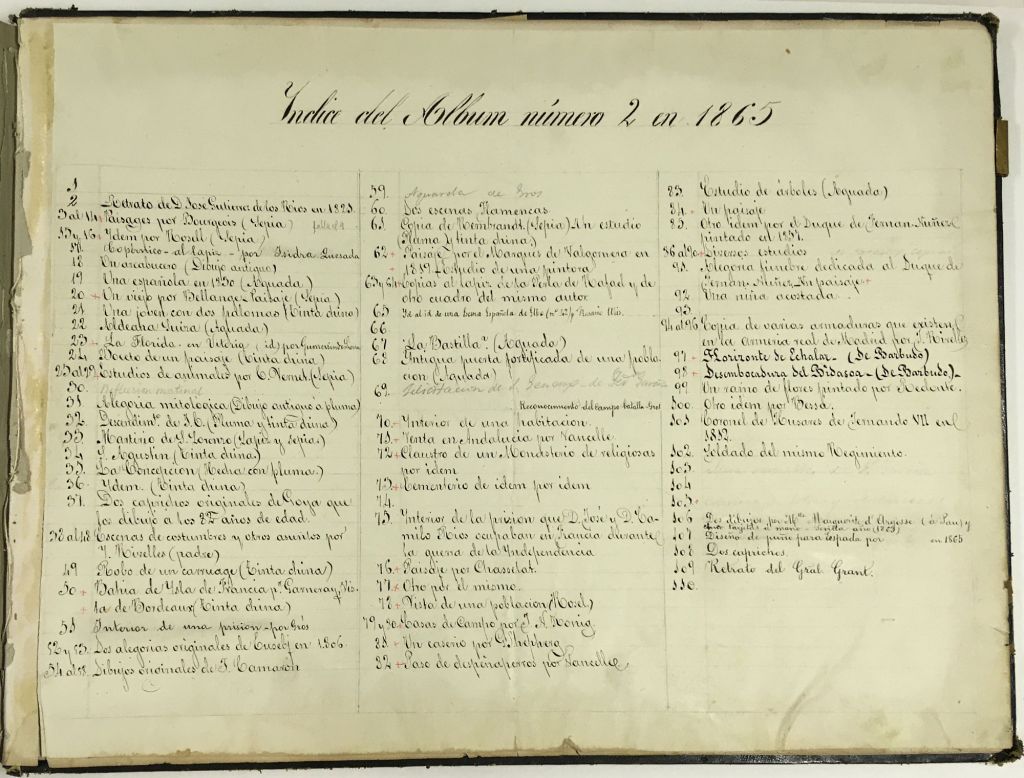 Indice del Album número 2 en 1865
1
2 Retrato de D. Jose Gutierrez de los Rios en 1823.
3 al 14 Paisages por Bourgeois (Sepia)
15 y 16 Ydem por Mosell (Sepia)
17. Copernico - al lapiz - por Isidra Quesada
18 Un arcabucero (Dibujo antiguo)
19 Una española en 1230 (Aguada)
20 Un viejo por Bellange - Paisaje (Sepia)
21 Una joven con dos palomas (Tinta china)
22 Aldeana Suiza (Aguada)
23 La Florida en Vitoria (id) por
24 Boceto de un paisaje (Tinta china)
25 al 29 Estudios de animales por C. Vernet (Sepia)
30
31 Alegoria mitologica (Dibujo antiguo á pluma)
32. Descendimto. de J.C. (Pluma y tinta china)
33 Martirio de S. Lorenzo (Lapiz y sepia)
34 S. Agustin (Tinta china)
35. La Concepcion (Hecha con pluma.)
36 Ydem. (Tinta china)
37. Dos caprichos originales de Goya que
los dibujó á los 82 años de edad.
38 al 48 Escenas de costumbres y otros asuntos por
J. Rivelles (padre)
49 Robo de un carruage (Tinta china)
50 Bahia de Ysla de Francia pr. Garneray y Vis-
ta de Bordeaux (Tinta china)
51 Interior de una prision - por Gros
52 y 53. Dos alegorias originales de Eusebi en 1806.
54 al 58. Dibujos originales de J. Camaron
59. Aguarela de Gros
60 Dos escenas flamencas.
61 Copia de Rembrandt. (Sepia) Un estudio
(Pluma y tinta china)
62 Paisaje por el Marques de Valgornera en
1819 Estudio de una pintora
63 y 64 Copias al lapiz de la Perla de Rafael y de
otro cuadro del mismo autor.
65 Id al id de una Escena Española de
66
67 "La Bastilla" (Aguada)
68 Antigua puerta fortificada de una pobla-
cion (Aguada)
69.
Reconocimiento del campo batalla - Gros
70 Ynterior de una habitacion.
71 Venta en Andalucia por Vancelle.
72 Claustro de un Monasterio de religiosas
por idem
73 Cementerio de idem por idem
74
75 Interior de la prision que D. José y D. Ca-
milo Rios ocupaban en Francia durante
la guerra de la Independencia
76 Paisaje por Chasselat.
77 Otro por el mismo.
78 Vista de una poblacion (Mosel)
79 y 80 Casas de Campo por J. A. Konig.
81 Un caserio por
82 Paso de despeñaperros por Vancelle
83. Estudio de árboles (Aguada)
84 Un paisaje
85. Otro idem por el Duque de Fernan-Nuñez
pintado en
86 al 90 Diversos estudios
91. Alegoria funebre dedicada al Duque de
Fernan-Nuñez. Un paisaje
92. Una niña acostada
93
94 al 96. Copia de varias armaduras que existen
en la Armeria real de Madrid por J. Rivelles
97 Horizonte de Echalar - (De Barbudo)
98 Desembocadura del Bidasoa - (De Barbudo)
99 Un ramo de flores pintado por Redonte.
100. Otro idem por Bessa.
101 Coronel de Husares de Fernando VII en
1812.
102. Soldado del mismo Regimiento.
103
104
105
106 Dos dibujos por Mlle Marguerite d'Argosse (á Pau) y
otros tarjetas a mano - Sevilla año (1863)
107 Diseño de puño para Espada por en 1865
108 Dos caprichos.
109 Retrato del Gral. Grant.
110.